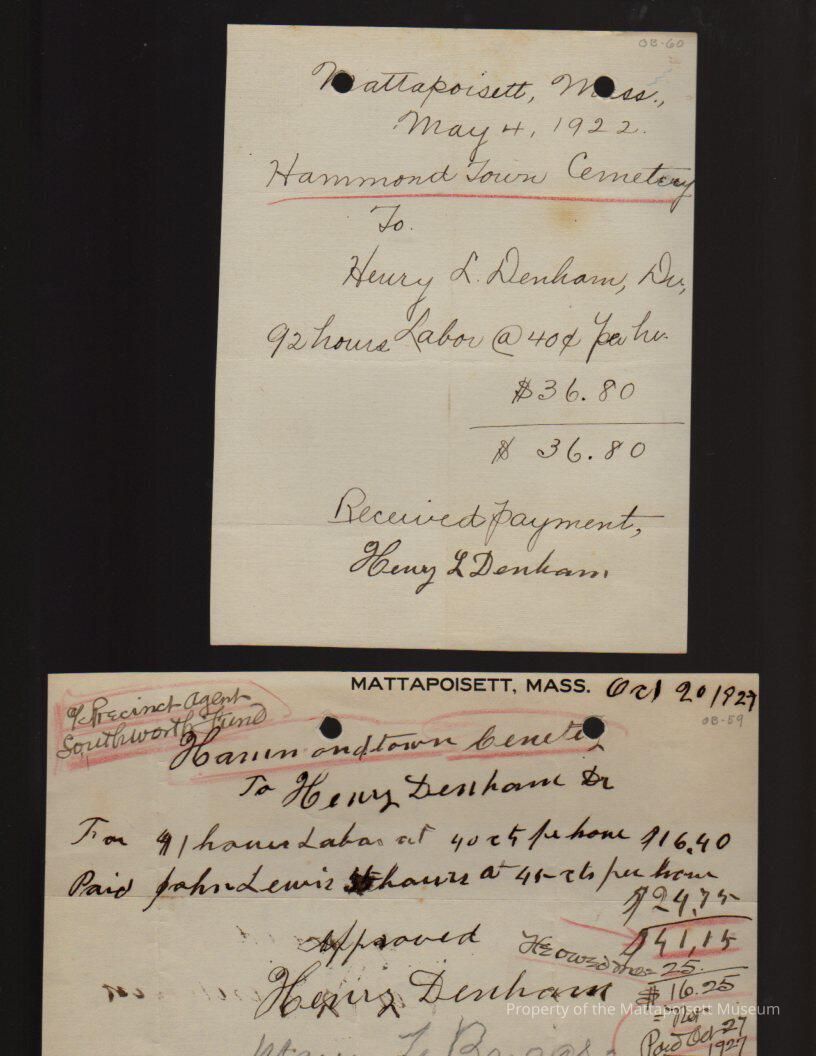 OB-60
Mattapoisett, Mass.,
May 4, 1922.
Hammond Town Cemetery
To.
Henry L. Denham, Dr,
92 hours Labor @ 40¢ per hr.
$36.80
$ 36.80
Received payment,
Henry L Denham
MATTAPOISETT, MASS. Oct 20 1927
OB-59
Precinct Agent
Southworth Fund
Hammondtown Cemetery
To Henry Denham Dr
For 41 hours Labor at 40 cts per hour $16.40
Paid John Lewis 55 hours at 45 cts per hour
$24,75
$41,15
Approved
He owed me 25.
$ 16.25
Henry Denham
Property of the Mattapoisett Museum
Paid Oct 27
1927